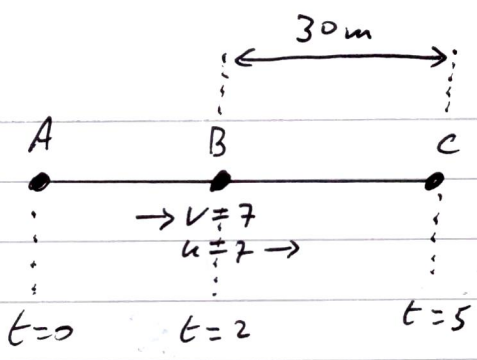 30m
A B C
→ v=7
u=7 →
t=0 t=2 t=5